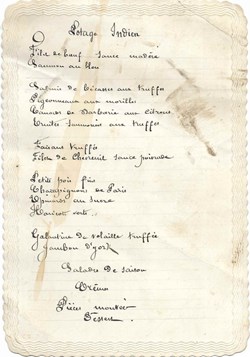 Potage Indien
Filet de bœuf sauce madère
Saumon au bleu
Salmis de Bécasses aux truffes
Pigeonneaux aux morilles
Canards de Barbarie aux citrons
Truites saumonées aux truffes
Faisans truffés
Filet de Chevreuil sauce poivrade
Petits pois fins
Champignons de Paris
au sucre
Haricots verts
Galantine de volaille truffée
Jambon d'york
Salade de saison
Crème
Pièces montées
Dessert